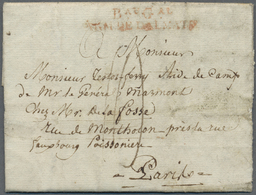 A Monsieur
Monsieur Aide de Camp
de Mr le Marmont
Chez Mr. De la Fosse
rue de Montholon près la rue
faubourg Poissonière
Paris